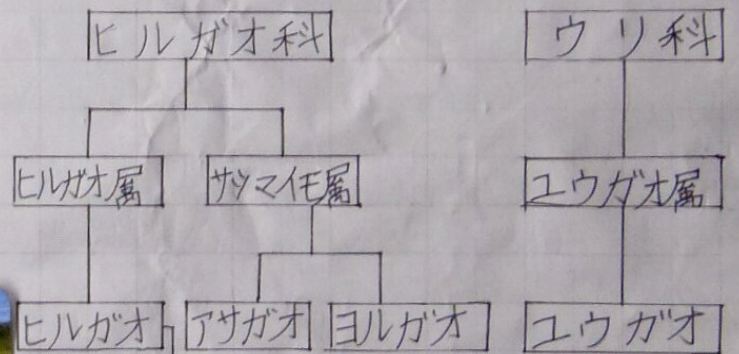 ヒルガオ科 ウリ科
ヒルガオ属 サツマイモ属 ユウガオ属
ヒルガオ アサガオ ヨルガオ ユウガオ